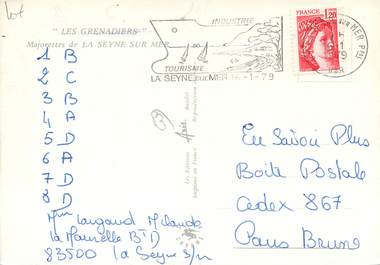 Lot
" LES GRENADIERS "
Majorettes de LA SEYNE SUR MER
INDUSTRIE
TOURISME
LA SEYNE SUR MER 16-1-79
FRANCE
1,20
MER PPAL
VAR
1 B
2 C
3 B
4 A
5 D
6 A
7 D
8 D
Les Editions
Imprimé en France
Reproduction
En Savoir Plus
Boite Postale
Cedex 867
Paris Brune
Mme
83500 La Seyne s/m